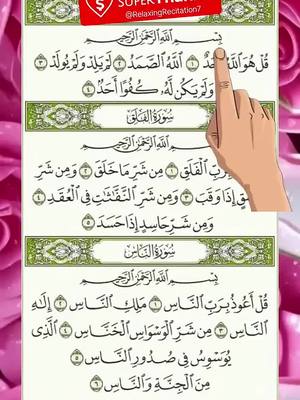 SUPER
@RelaxingRecitation7
بِسْمِ اللَّهِ الرَّحْمَٰنِ الرَّحِيمِ
قُلْ هُوَ اللَّهُ ١ اللَّهُ الصَّمَدُ ٢ لَمْ يَلِدْ وَلَمْ يُولَدْ ٣
وَلَمْ يَكُن لَّهُۥ كُفُوًا أَحَدٌ ٤
سُورَةُ الْفَلَقِ
بِسْمِ اللَّهِ الرَّحْمَٰنِ
بِرَبِّ الْفَلَقِ ١ مِن شَرِّ مَا خَلَقَ ٢ وَمِن شَرِّ
إِذَا وَقَبَ ٣ وَمِن شَرِّ النَّفَّٰثَٰتِ فِي الْعُقَدِ ٤
وَمِن شَرِّ حَاسِدٍ إِذَا حَسَدَ ٥
سُورَةُ النَّاسِ
بِسْمِ اللَّهِ الرَّحْمَٰنِ الرَّحِيمِ
قُلْ أَعُوذُ بِرَبِّ النَّاسِ ١ مَلِكِ النَّاسِ ٢ إِلَٰهِ
النَّاسِ ٣ مِن شَرِّ الْوَسْوَاسِ الْخَنَّاسِ ٤ الَّذِي
يُوَسْوِسُ فِي صُدُورِ النَّاسِ ٥
مِنَ الْجِنَّةِ وَالنَّاسِ ٦